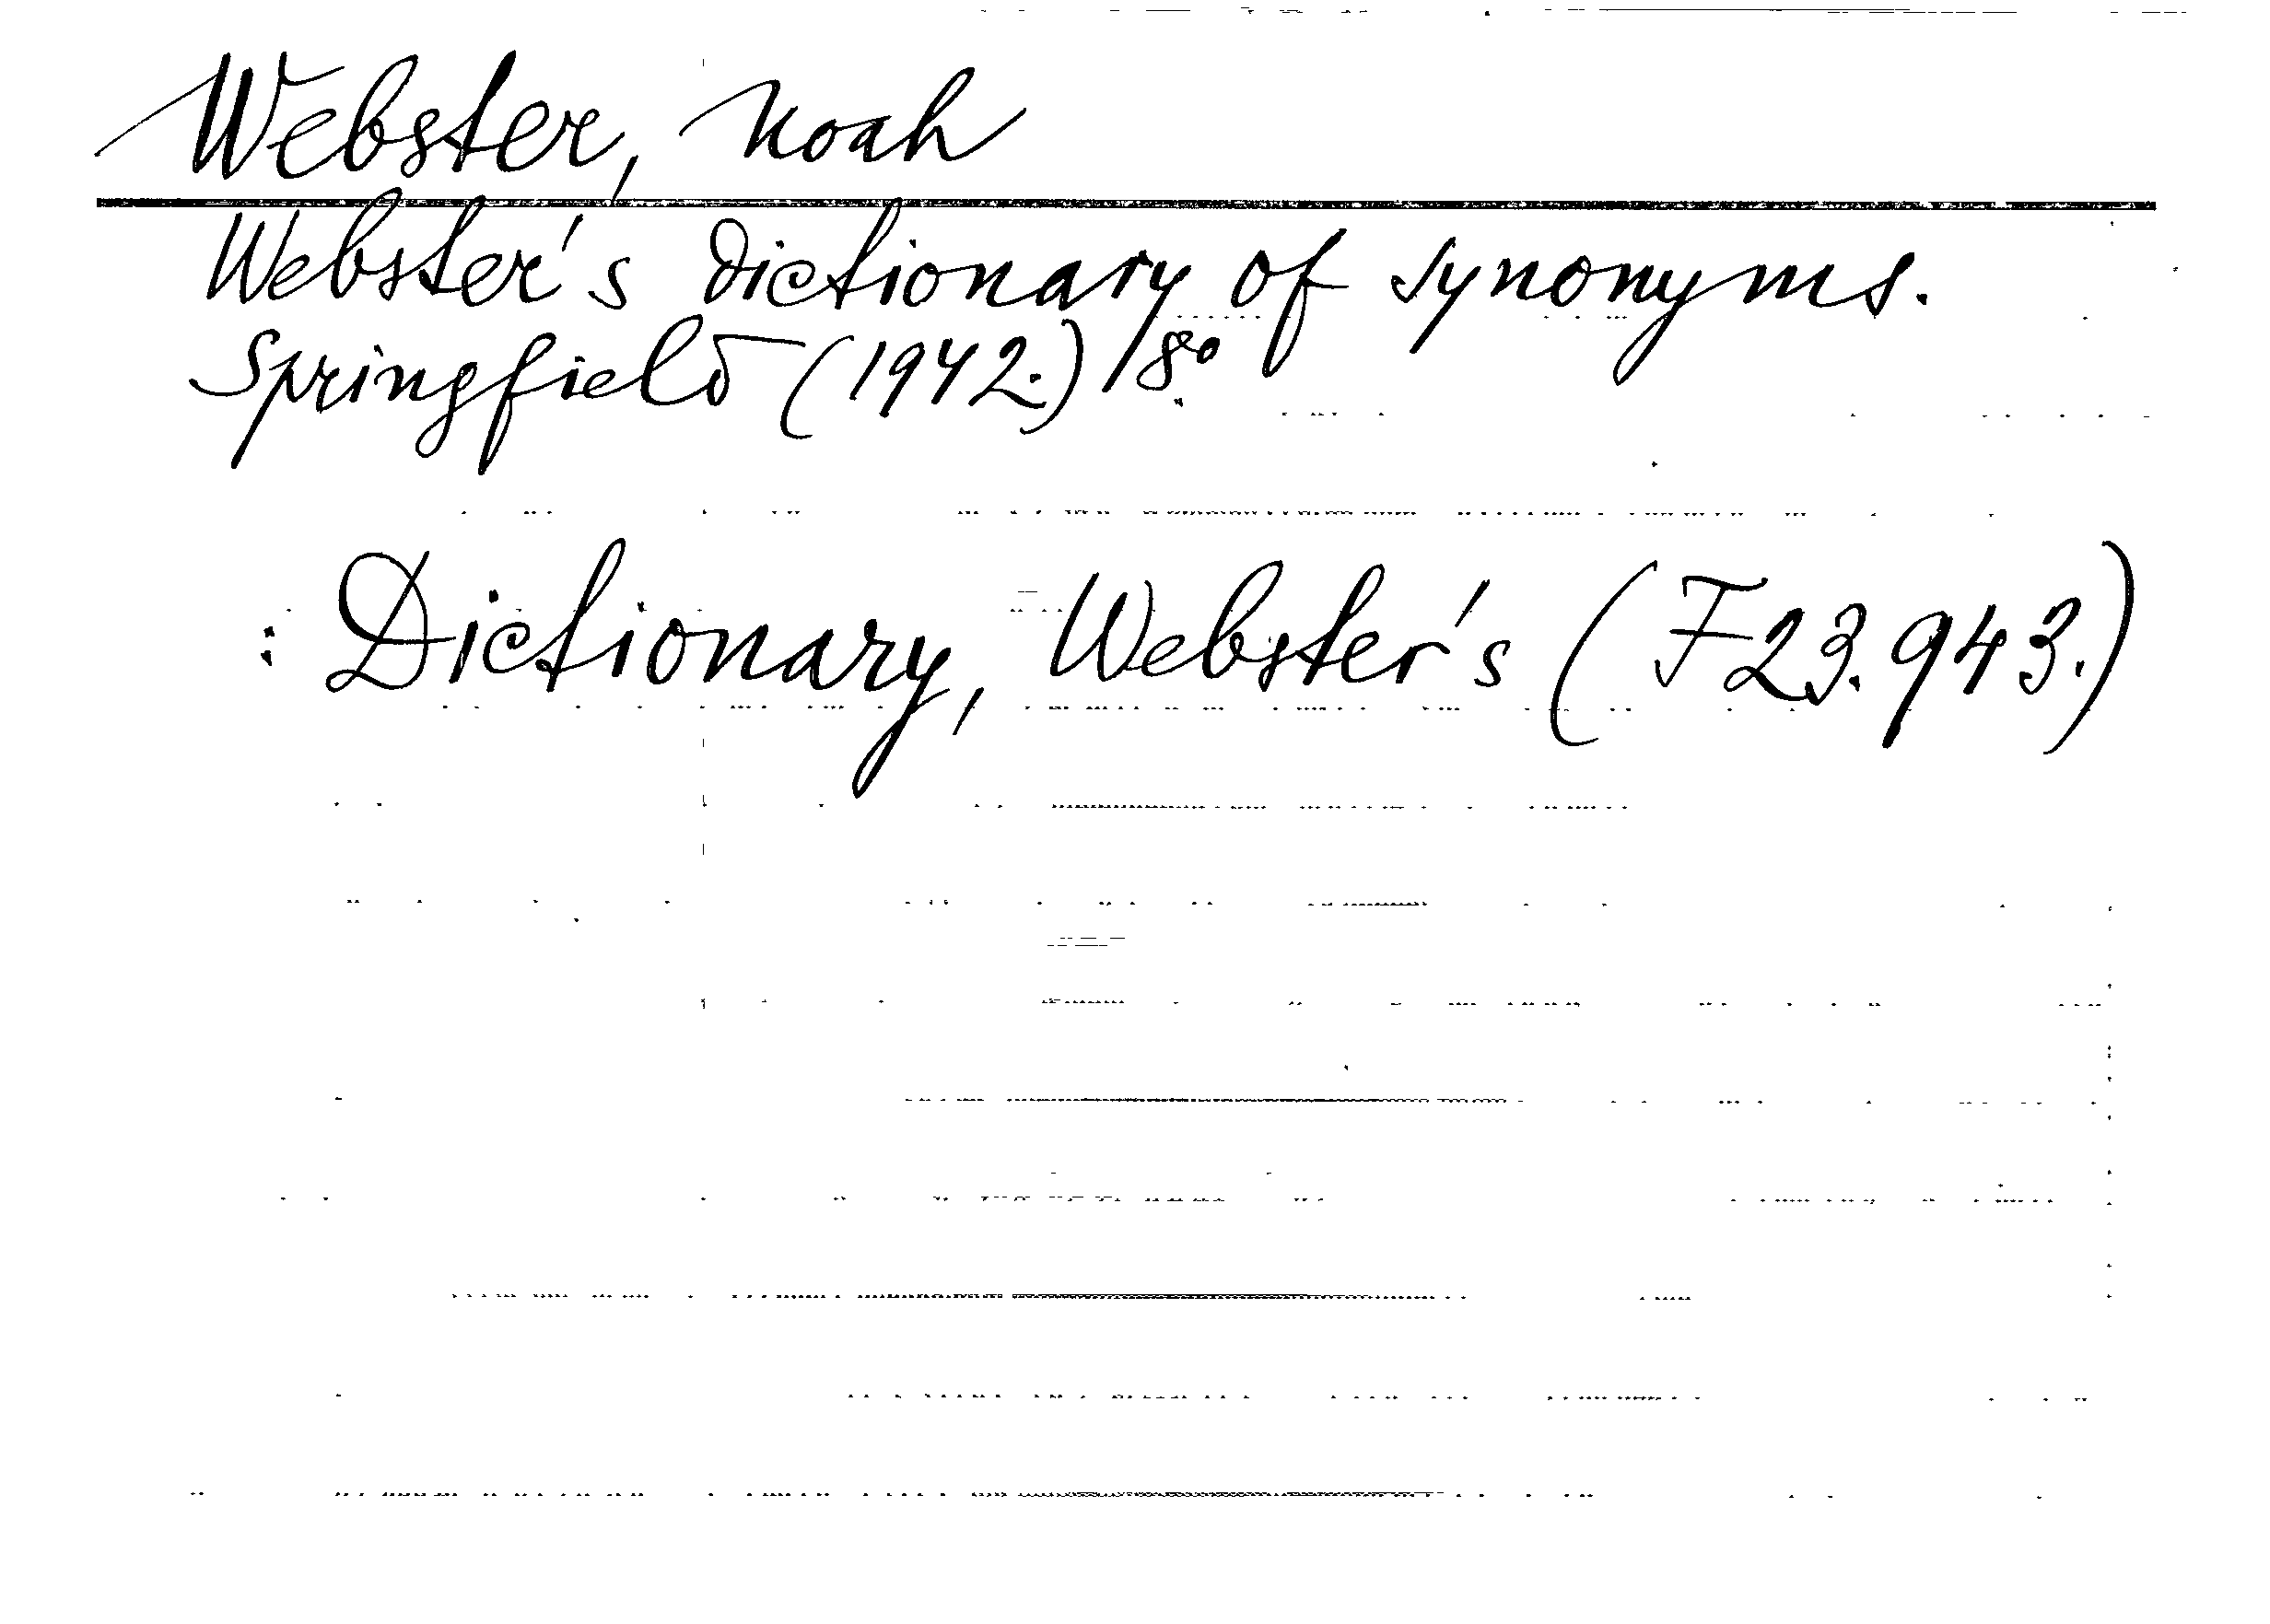 Webster, Noah
Webster's dictionary of synonyms.
Springfield (1942.) 8°.
: Dictionary, Webster's (F23.943.)